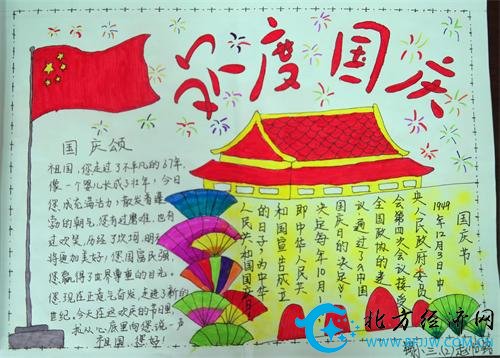 欢度国庆
国庆颂
祖国，您走过了不平凡的67年，
像一个婴儿长成了壮年，今日
您成充满活力，散发着蓬
勃的朝气，您有过磨难，也有
过欢笑，历经了坎坷，明天
将更加美好！您国富民强
您赢得了世界尊重的目光。
您现在正意气奋发，走进了新的
世纪。今天在这欢庆的节日里，
我从心底里向您说一声
祖国，您好！
国庆节
1949年12月3日，中
央人民政府委员
会第四次会议接受
全国政协的建
议，通过了《中国
国庆日的决定》
决定每年10月1
即中华人民共
和国宣告成立
的日子，为中华
人民共和国国庆日
北方经济网